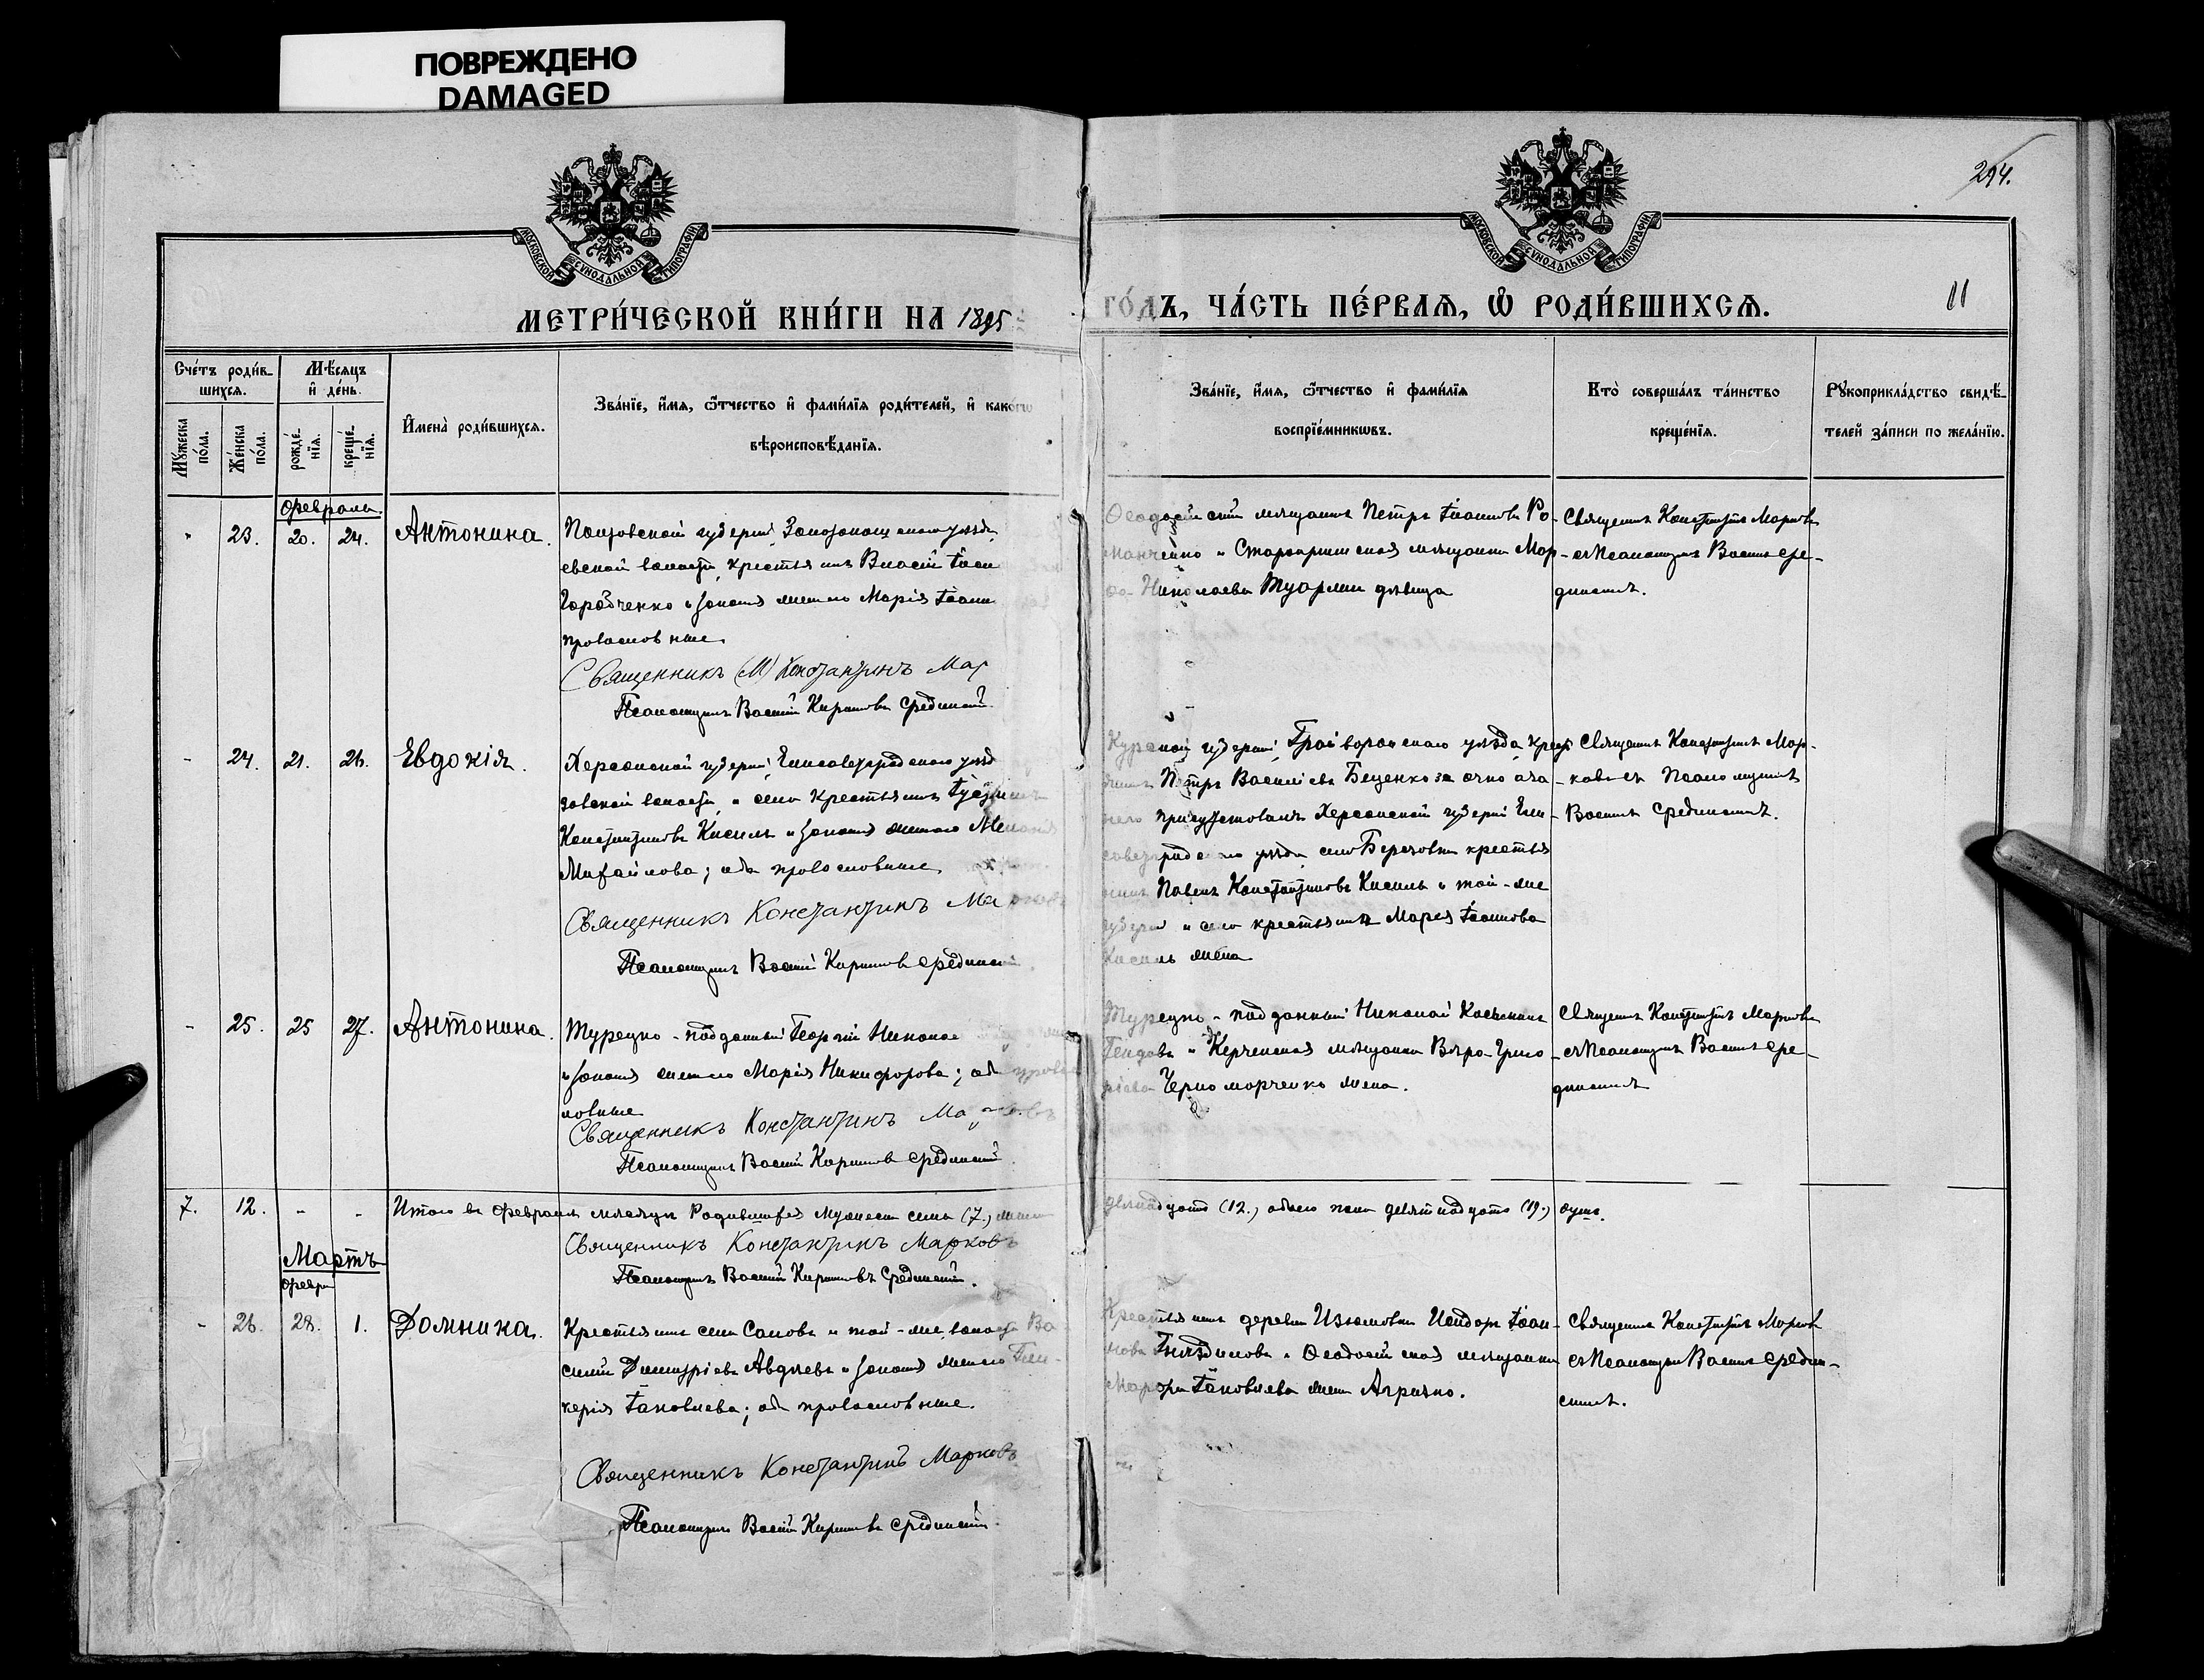 ПОВРЕЖДЕНО
DAMAGED
МОСКОВСКОЙ СѴНОДАЛЬНОЙ ТИПОГРАФІИ
МОСКОВСКОЙ СѴНОДАЛЬНОЙ ТИПОГРАФІИ
294.
МЕТРИ́ЧЕСКОЙ КНИ́ГИ НА 1895
ГО́ДЪ, ЧА́СТЬ ПЕ́РВАѦ, Ѿ РОДИ́ВШИХСѦ.
11
Сче́тъ роди́вшихсѧ.
Мꙋ́жеска по́ла.
Же́нска по́ла.
Мѣ́сѧцъ и҆ де́нь.
рожде́нїѧ.
креще́нїѧ.
И҆мена̀ роди́вшихсѧ.
Зва́нїе, и҆́мѧ, ѻ҆́тчество и҆ фами́лїѧ роди́телей, и҆ како́гѡ
вѣроисповѣ́данїѧ.
Зва́нїе, и҆́мѧ, ѻ҆́тчество и҆ фами́лїѧ
воспрїе́мникѡвъ.
Кто̀ соверша́лъ та́инство
креще́нїѧ.
Рꙋкоприкла́дство свидѣ́-
телей за́писи по жела́нїю.
Февраль.
23. 20. 24. Антонина.
Полтовской губерніи, уѣзда,
евской волости, крестьянинъ Власій Іоан
Городченко и законная жена его Марія Іоан
православные.
Священникъ (М) Константинъ Мар
Псаломщикъ Василій Кирилловъ Срединскій.
Ѳеодосійскій мѣщанинъ Петръ Іоанновъ Ро-
манченко и Старокрымская мѣщанка Мар-
ѳа Николаева девица
Священникъ Константинъ Марковъ
съ Псаломщикомъ Васил. Сре-
динскимъ.
24. 21. 26. Евдокія.
Херсонской губерніи, Елисаветградскаго уѣзд
зовской волости и села крестьянинъ Іустинъ
Константиновъ Кисиль и законная жена его Меланія
Михайлова; оба православные.
Священникъ Константинъ Марковъ
Псаломщикъ Василій Кирилловъ Срединскій.
Курской губерніи, Грайворонскаго уѣзда, крест
янинъ Петръ Василіевъ Беценко за очно а за
него присутствовалъ Херсонской губерніи Ели-
саветградскаго уѣзда село Березовки крестья
нинъ Павелъ Константиновъ Кисиль и той-же
губерніи и села крестьянка Марія Іоаннова
Кисиль жена
Священникъ Константинъ Мар-
ковъ съ Псаломщикомъ
Васил. Срединскимъ.
25. 25 27. Антонина.
Турецко-подданный Георгій Николае
и законная жена его Марія Никифорова; оба правос
лавные
Священникъ Константинъ Марковъ
Псаломщикъ Василій Кирилловъ Срединскій
Турецко-подданный Николай
и Керченская мѣщанка Вѣра Григо-
ріева Черноморченко жена.
Священникъ Константинъ Марковъ
съ Псаломщикомъ Васил. Сре-
динскимъ
7. 12. - - Итого въ Февралѣ мѣсяцѣ Родившихся мужеск. семь (7.) женск
двѣнадцать (12.) обоего пола девятнадцать (19.) душъ.
Священникъ Константинъ Марковъ
Псаломщикъ Василій Кирилловъ Срединскій.
Мартъ
Февр
26. 28. 1. Домника.
Крестьянинъ села Салов и той-же волости Ва
силій Димитріевъ Авдѣевъ и законная жена его Гли-
керія Іаковлева; оба православные.
Священникъ Константинъ Марковъ
Псаломщикъ Василій Кирилловъ Срединскій.
Крестьянинъ деревни Изюмовки Исидоръ Іоан-
новъ Гнѣздиловъ и Ѳеодосійская мѣщанка
Марѳа Іаковлева жена
Священникъ Константинъ Марковъ
съ Псаломщикомъ Васил. Средин-
скимъ.